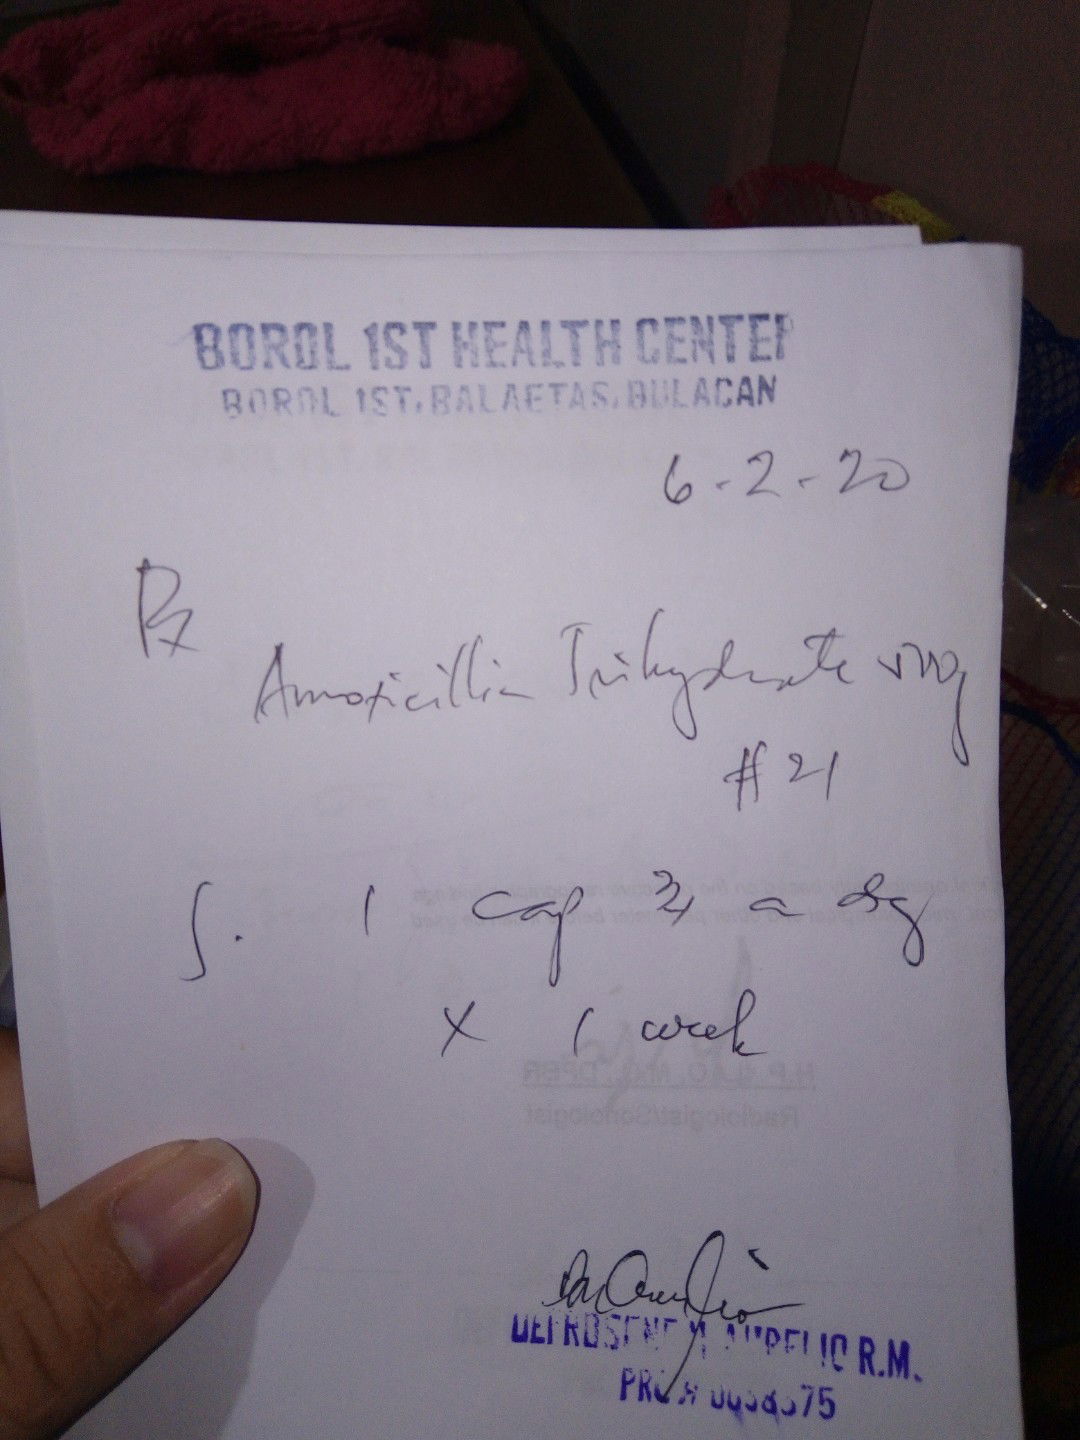 BOROL 1ST HEALTH CENTER
BOROL 1ST, BALAETAS, BULACAN
6-2-20
Rx
Amoxicillin Trihydrate 500mg
#21
S. 1 cap 3x a day
x 1 week
AURELIO R.M.